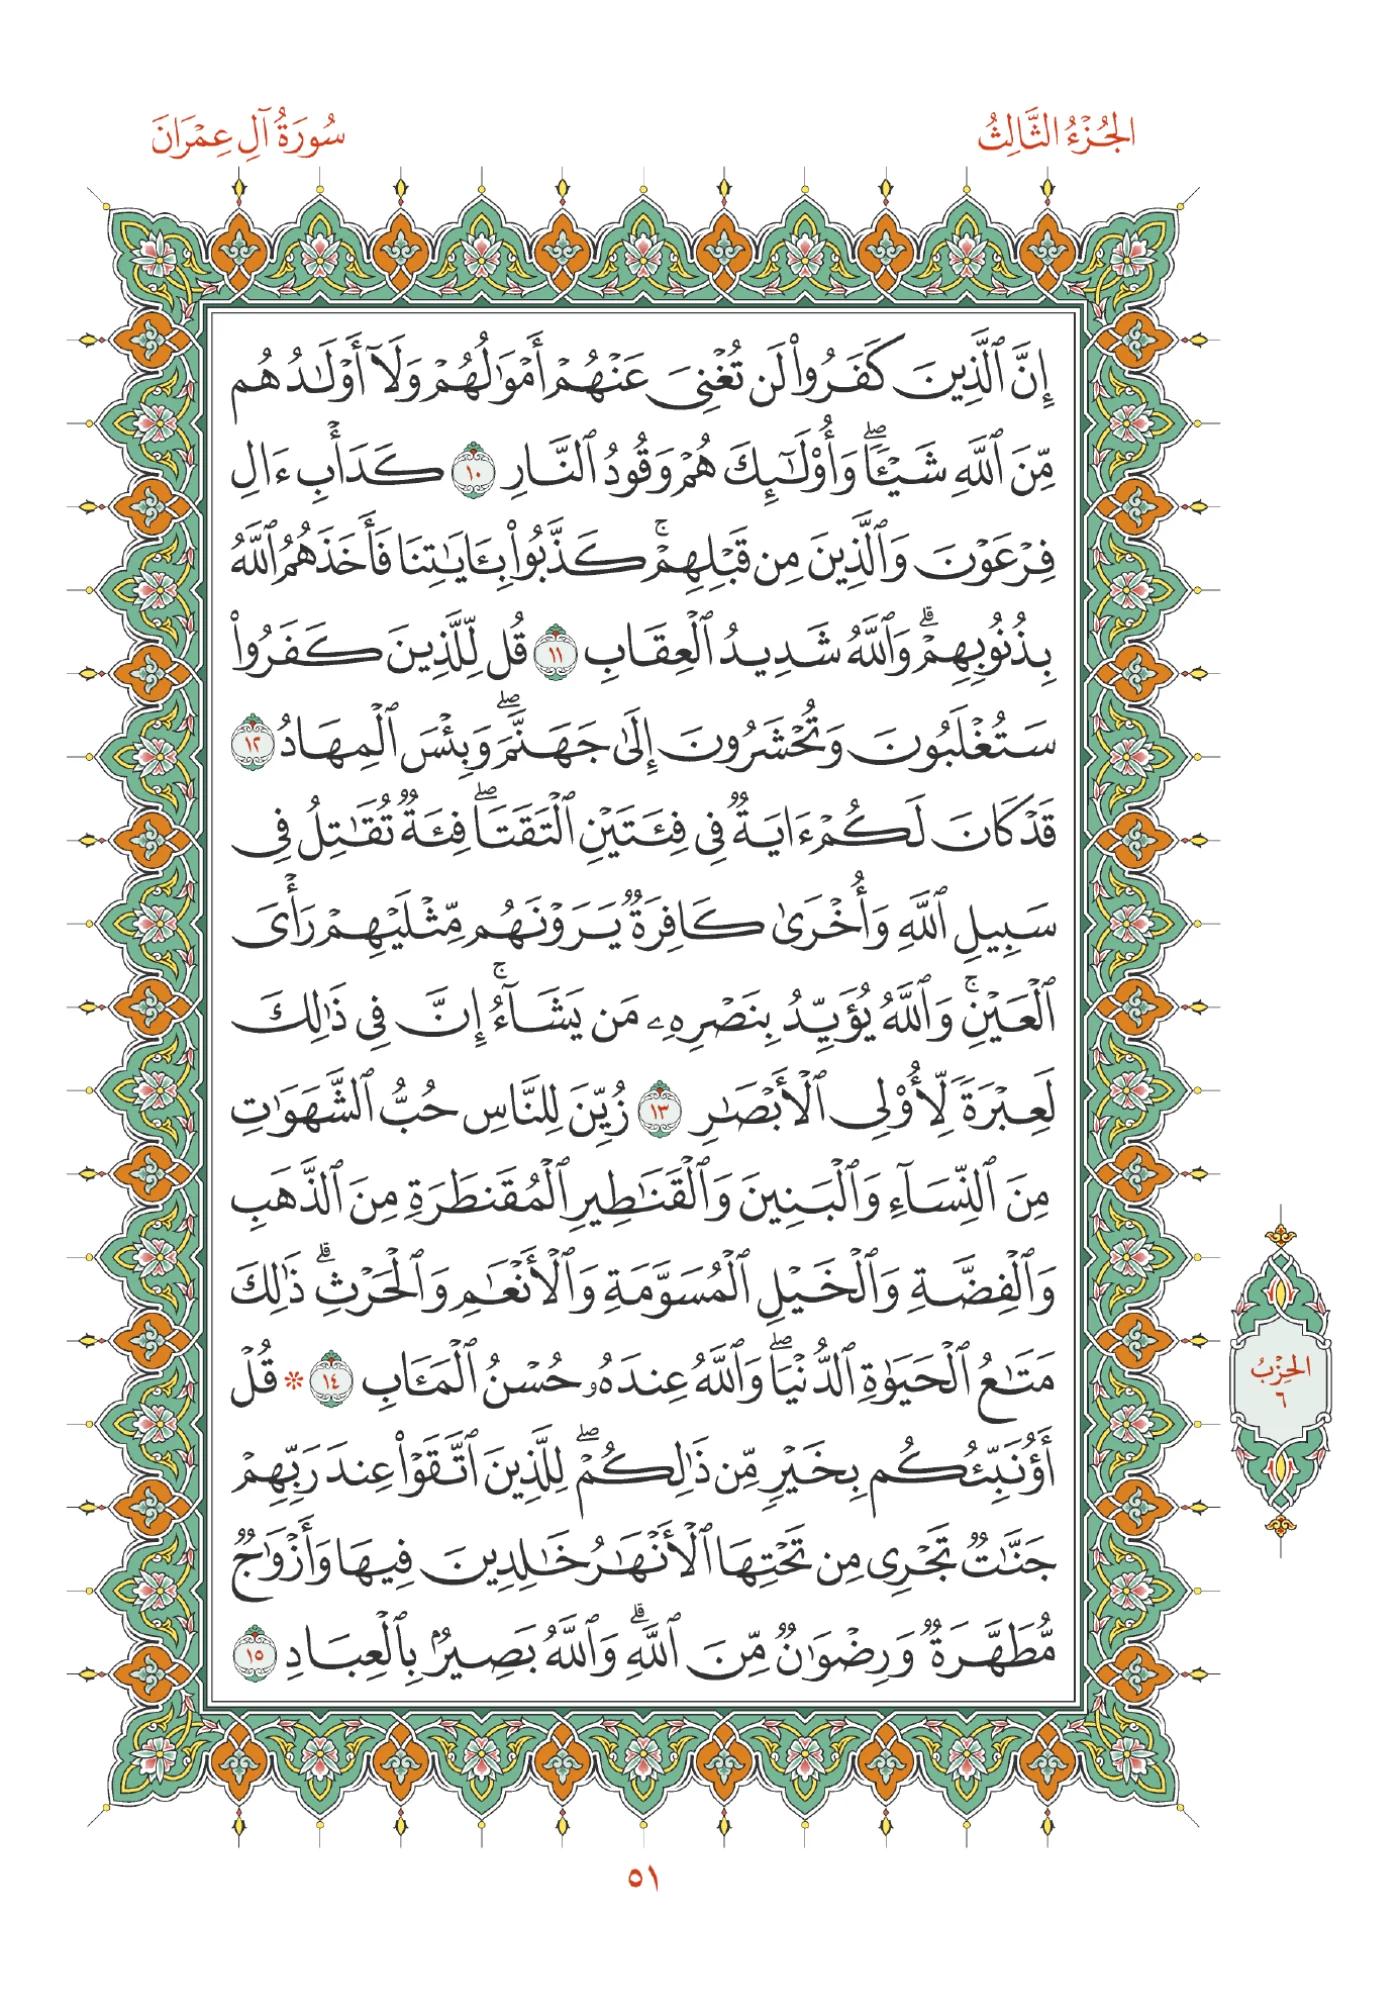 الجُزْءُ الثَّالِثُ
سُورَةُ آلِ عِمْرَانَ
إِنَّ ٱلَّذِينَ كَفَرُواْ لَن تُغْنِىَ عَنْهُمْ أَمْوَٰلُهُمْ وَلَآ أَوْلَٰدُهُم
مِّنَ ٱللَّهِ شَيْـًٔاۖ وَأُوْلَٰٓئِكَ هُمْ وَقُودُ ٱلنَّارِ ١٠ كَدَأْبِ ءَالِ
فِرْعَوْنَ وَٱلَّذِينَ مِن قَبْلِهِمْۚ كَذَّبُواْ بِـَٔايَٰتِنَا فَأَخَذَهُمُ ٱللَّهُ
بِذُنُوبِهِمْۗ وَٱللَّهُ شَدِيدُ ٱلْعِقَابِ ١١ قُل لِّلَّذِينَ كَفَرُواْ
سَتُغْلَبُونَ وَتُحْشَرُونَ إِلَىٰ جَهَنَّمَۖ وَبِئْسَ ٱلْمِهَادُ ١٢
قَدْ كَانَ لَكُمْ ءَايَةٌ فِى فِئَتَيْنِ ٱلْتَقَتَاۖ فِئَةٌ تُقَٰتِلُ فِى
سَبِيلِ ٱللَّهِ وَأُخْرَىٰ كَافِرَةٌ يَرَوْنَهُم مِّثْلَيْهِمْ رَأْىَ
ٱلْعَيْنِۚ وَٱللَّهُ يُؤَيِّدُ بِنَصْرِهِۦ مَن يَشَآءُۚ إِنَّ فِى ذَٰلِكَ
لَعِبْرَةً لِّأُوْلِى ٱلْأَبْصَٰرِ ١٣ زُيِّنَ لِلنَّاسِ حُبُّ ٱلشَّهَوَٰتِ
مِنَ ٱلنِّسَآءِ وَٱلْبَنِينَ وَٱلْقَنَٰطِيرِ ٱلْمُقَنطَرَةِ مِنَ ٱلذَّهَبِ
وَٱلْفِضَّةِ وَٱلْخَيْلِ ٱلْمُسَوَّمَةِ وَٱلْأَنْعَٰمِ وَٱلْحَرْثِۗ ذَٰلِكَ
مَتَٰعُ ٱلْحَيَوٰةِ ٱلدُّنْيَاۖ وَٱللَّهُ عِندَهُۥ حُسْنُ ٱلْمَـَٔابِ ١٤ * قُلْ
أَؤُنَبِّئُكُم بِخَيْرٍ مِّن ذَٰلِكُمْۖ لِلَّذِينَ ٱتَّقَوْاْ عِندَ رَبِّهِمْ
جَنَّٰتٌ تَجْرِى مِن تَحْتِهَا ٱلْأَنْهَٰرُ خَٰلِدِينَ فِيهَا وَأَزْوَٰجٌ
مُّطَهَّرَةٌ وَرِضْوَٰنٌ مِّنَ ٱللَّهِۗ وَٱللَّهُ بَصِيرٌۢ بِٱلْعِبَادِ ١٥
الحِزْبُ
٦
٥١